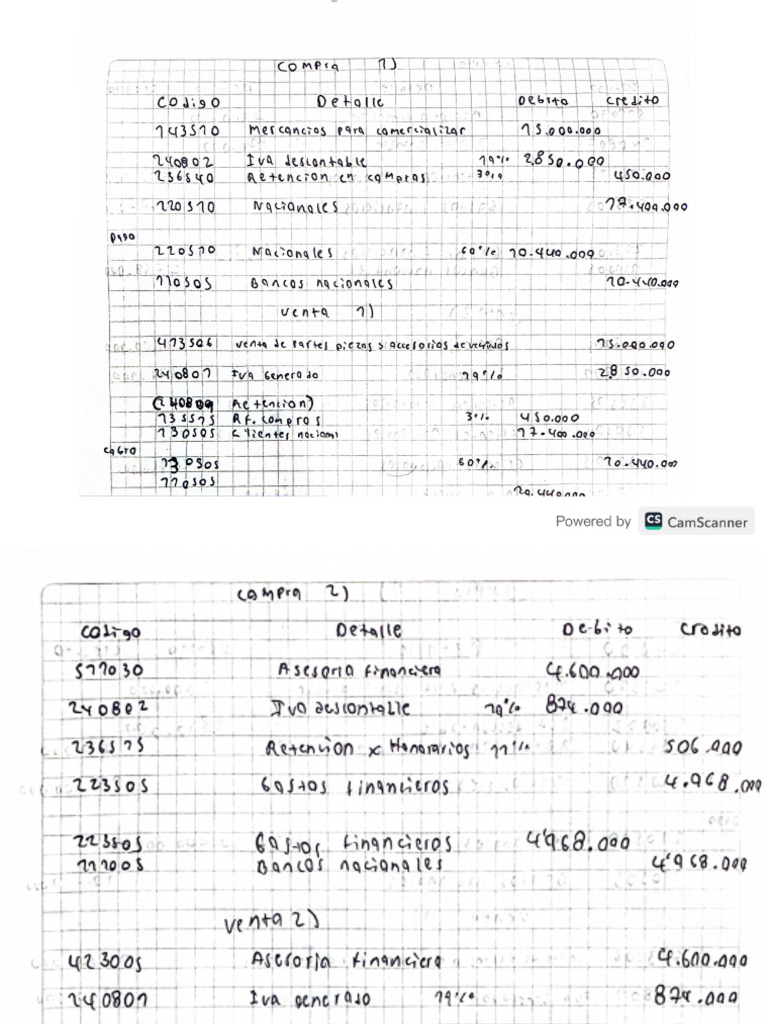 compra 1)
Codigo Detalle Debito Credito
143510 Mercancias para comercializar 15.000.000
240802 Iva descontable 19% 2.850.000
236540 Retencion en compras 3% 450.000
220510 Nacionales 17.400.000
pago
220510 Nacionales 60% 10.440.000
110505 Bancos nacionales 10.440.000
venta 1)
413506 venta de partes piezas y accesorios de vehiculos 15.000.000
240801 Iva Generado 19% 2.850.000
(240809 Retencion)
135515 Rf. compras 3% 450.000
130505 Clientes nacional 17.400.000
cobro
130505 60% 10.440.000
110505 10.440.000
Powered by CS CamScanner
compra 2)
codigo Detalle Debito Credito
511030 Asesoria financiera 4.600.000
240802 Iva descontable 19% 874.000
236515 Retencion x Honorarios 11% 506.000
223505 Gastos financieros 4.968.000
223505 Gastos financieros 4'968.000
111005 Bancos nacionales 4'968.000
venta 2)
423005 Asesoria financiera 4.600.000
240801 Iva generado 19% 874.000